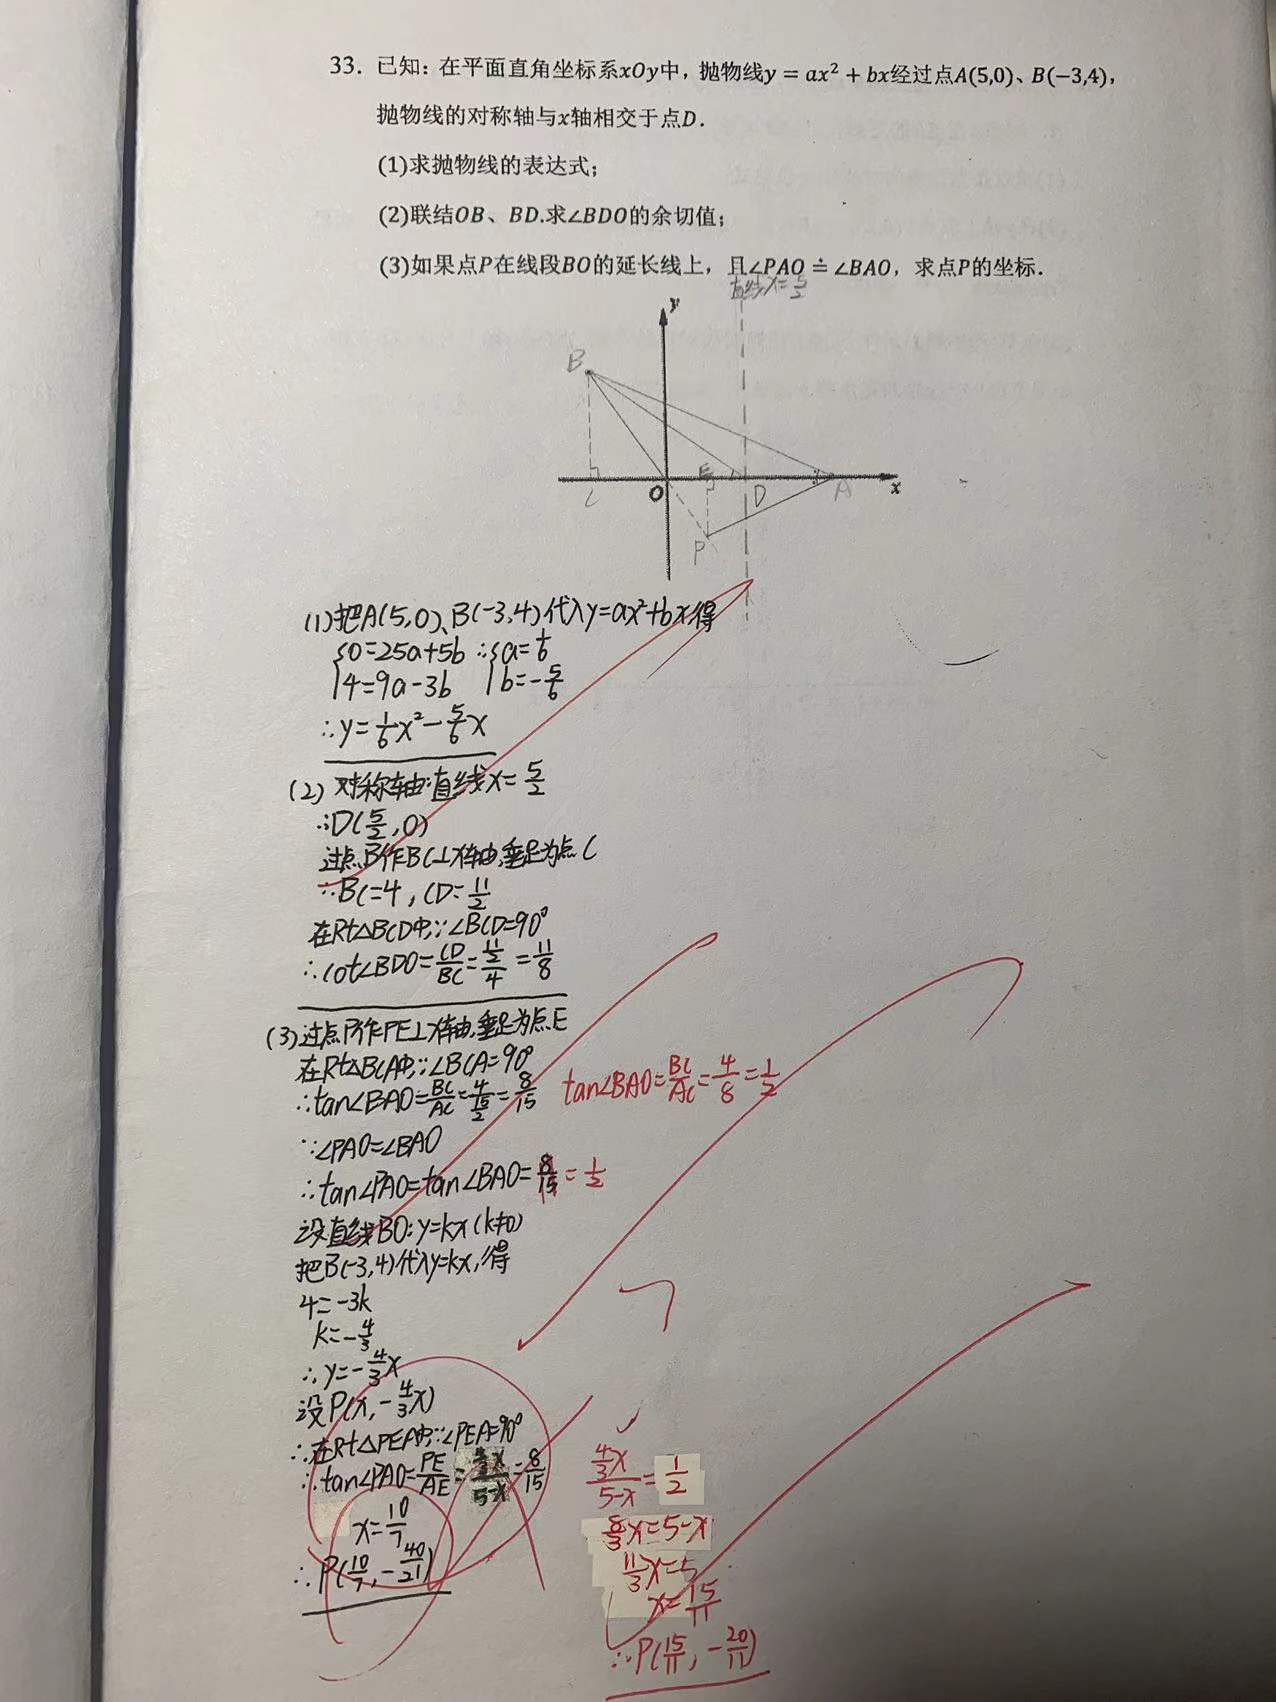 33. 已知：在平面直角坐标系xOy中，抛物线y = ax² + bx经过点A(5,0)、B(−3,4)，
抛物线的对称轴与x轴相交于点D.
(1)求抛物线的表达式；
(2)联结OB、BD.求∠BDO的余切值；
(3)如果点P在线段BO的延长线上，且∠PAO = ∠BAO，求点P的坐标.
直线x=5/2
y
B
E
C
O
D
A
x
P
(1)把A(5,0)、B(-3,4)代入y=ax²+bx得
{0=25a+5b ∴{a=1/6
4=9a-3b b=-5/6
∴y=1/6x²-5/6x
(2) 对称轴:直线x=5/2
∴D(5/2,0)
过点B作BC⊥x轴,垂足为点C
∴BC=4,CD=11/2
在Rt△BCD中,∵∠BCD=90°
∴cot∠BDO=CD/BC=(11/2)/4=11/8
(3)过点P作PE⊥x轴,垂足为点E
在Rt△BCA中,∵∠BCA=90°
∴tan∠BAO=BC/AC=4/(15/2)=8/15
tan∠BAO=BC/AC=4/8=1/2
∵∠PAO=∠BAO
∴tan∠PAO=tan∠BAO=8/15=1/2
设直线BO:y=kx(k≠0)
把B(-3,4)代入y=kx,得
4=-3k
k=-4/3
∴y=-4/3x
设P(x,-4/3x)
∴在Rt△PEA中,∵∠PEA=90°
∴tan∠PAO=PE/AE=(4/3x)/(5-x)=8/15
x=10/7
∴P(10/7,-40/21)
(4/3x)/(5-x)=1/2
8/3x=5-x
11/3x=5
x=15/11
∴P(15/11,-20/11)